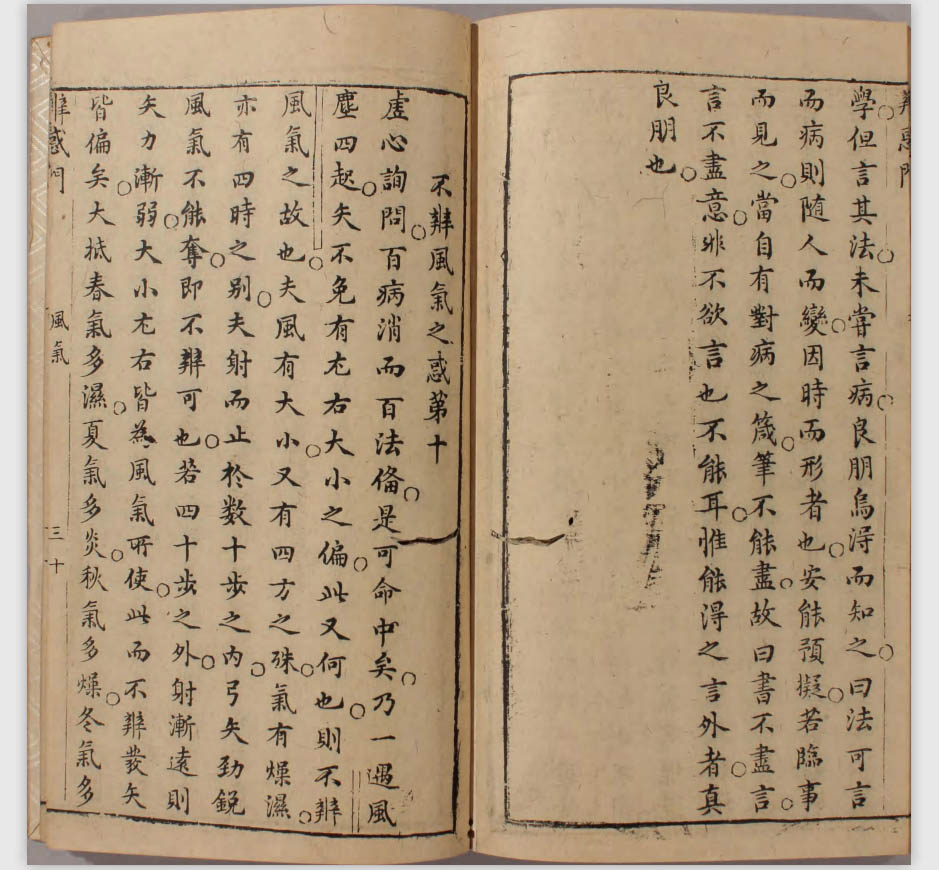 辨惑門
學但言其法未嘗言病良朋烏淂而知之曰法可言
而病則随人而變因時而形者也安能預擬若臨事
而見之當自有對病之箴筆不能盡故曰書不盡言
言不盡意非不欲言也不能耳惟能得之言外者真
良朋也
不辨風氣之惑第十
虛心詢問百病消而百法偹是可命中矣乃一遇風
塵四起矢不免有左右大小之偏此又何也則不辨
風氣之故也夫風有大小又有四方之殊氣有燥濕
亦有四時之别夫射而止於数十步之内弓矢勁銳
風氣不能奪即不辨可也若四十步之外射漸遠則
矢力漸弱大小左右皆為風氣所使此而不辨發矢
皆偏矣大抵春氣多濕夏氣多炎秋氣多燥冬氣多
辨惑門 風氣 三十